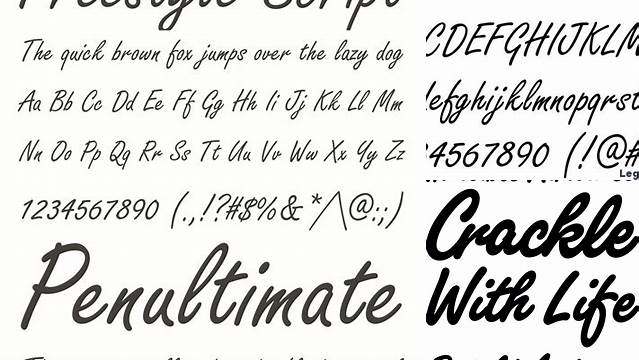 Freestyle Script
The quick brown fox jumps over the lazy dog
Aa Bb Cc Dd Ee Ff Gg Hh Ii Jj Kk Ll Mm
Nn Oo Pp Qq Rr Ss Tt Uu Vv Ww Xx Yy Zz
1234567890 (.,!?#$%&*/\@:;)
Penultimate
CDEFGHIJKLM
efghijklmnopqrst
4567890 (!@#
Leg
Crackle
With Life